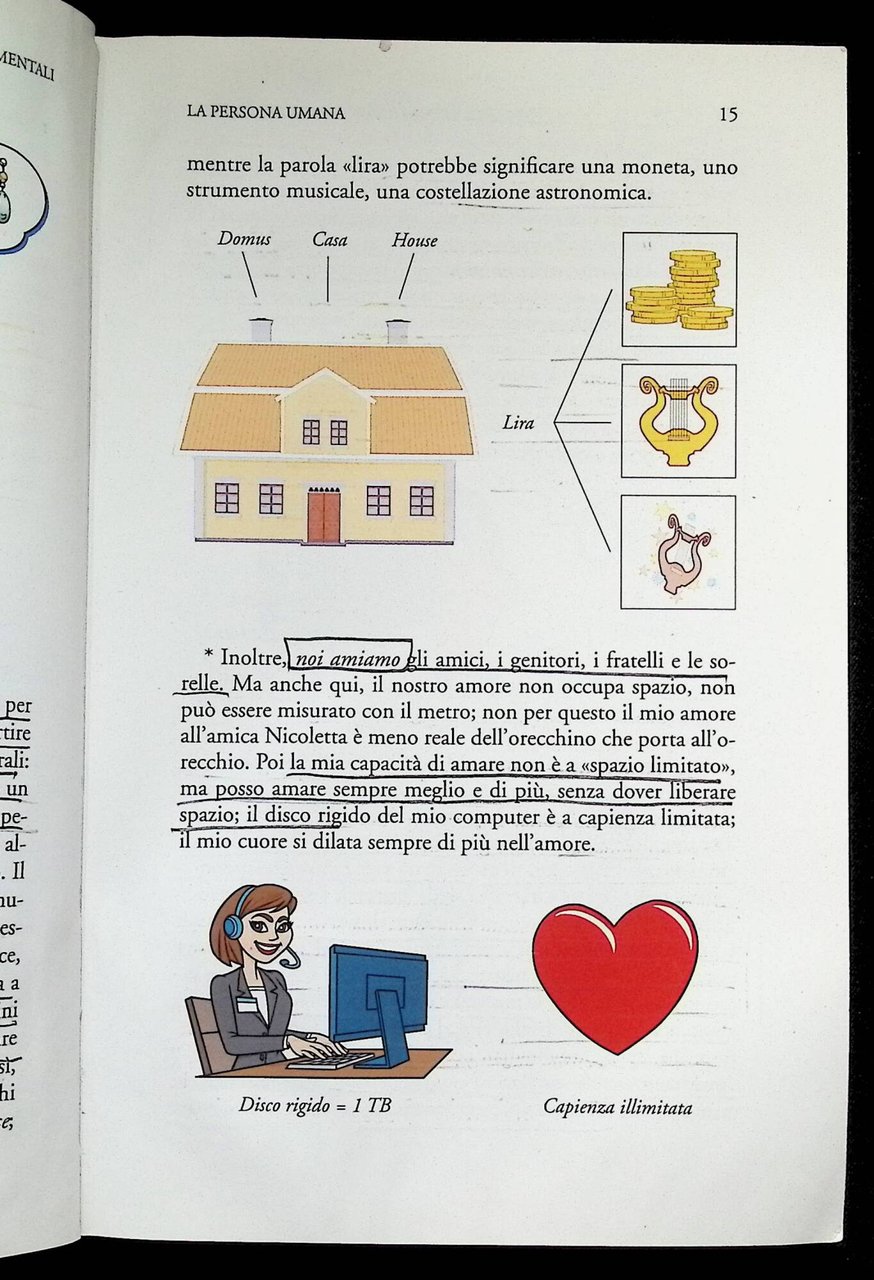 MENTALI
per
rtire
rali:
un
pe-
al-
. Il
nu-
es-
ce,
a a
ni
re
sì,
hi
e;
LA PERSONA UMANA 15
mentre la parola «lira» potrebbe significare una moneta, uno
strumento musicale, una costellazione astronomica.
Domus Casa House
Lira
* Inoltre, noi amiamo gli amici, i genitori, i fratelli e le so-
relle. Ma anche qui, il nostro amore non occupa spazio, non
può essere misurato con il metro; non per questo il mio amore
all'amica Nicoletta è meno reale dell'orecchino che porta all'o-
recchio. Poi la mia capacità di amare non è a «spazio limitato»,
ma posso amare sempre meglio e di più, senza dover liberare
spazio; il disco rigido del mio computer è a capienza limitata;
il mio cuore si dilata sempre di più nell'amore.
Disco rigido = 1 TB Capienza illimitata